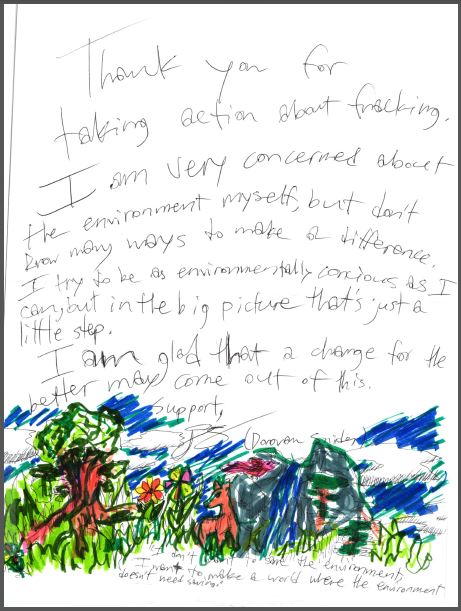 Thank you for
taking action about fracking.
I am very concerned about
the environment myself, but don't
know many ways to make a difference.
I try to be as environmentally concious as I
can, but in the big picture that's just a
little step.
I am glad that a change for the
better may come out of this.
support,
"I don't want to save the environment,
I want to make a world where the environment
doesn't need saving."